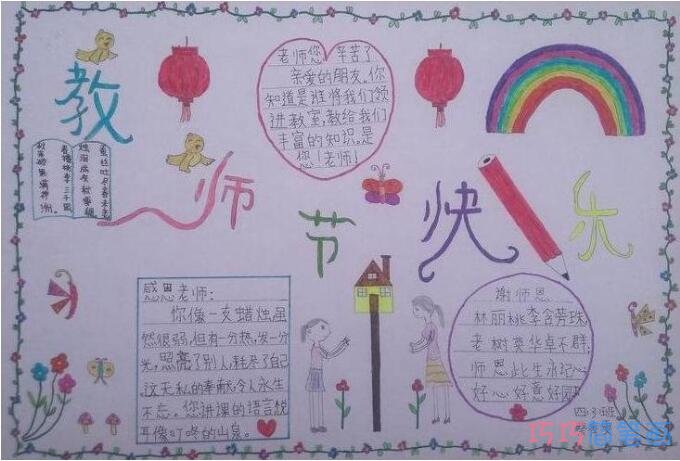 教师节快乐
老师您辛苦了
亲爱的朋友，你
知道是谁将我们领
进教室，教给我们
丰富的知识。是
您！老师！
感恩老师：
你像一支蜡烛虽
然很弱，但有一分热，发一分
光，照亮了别人，耗尽了自己
这无私的奉献，令人永生
不忘。您讲课的语言悦
耳像叮咚的山泉。
谢师恩
林丽桃李含芳珠，
老树英华卓不群，
师恩此生永记心
好心好意好园
四.3班
巧巧简笔画